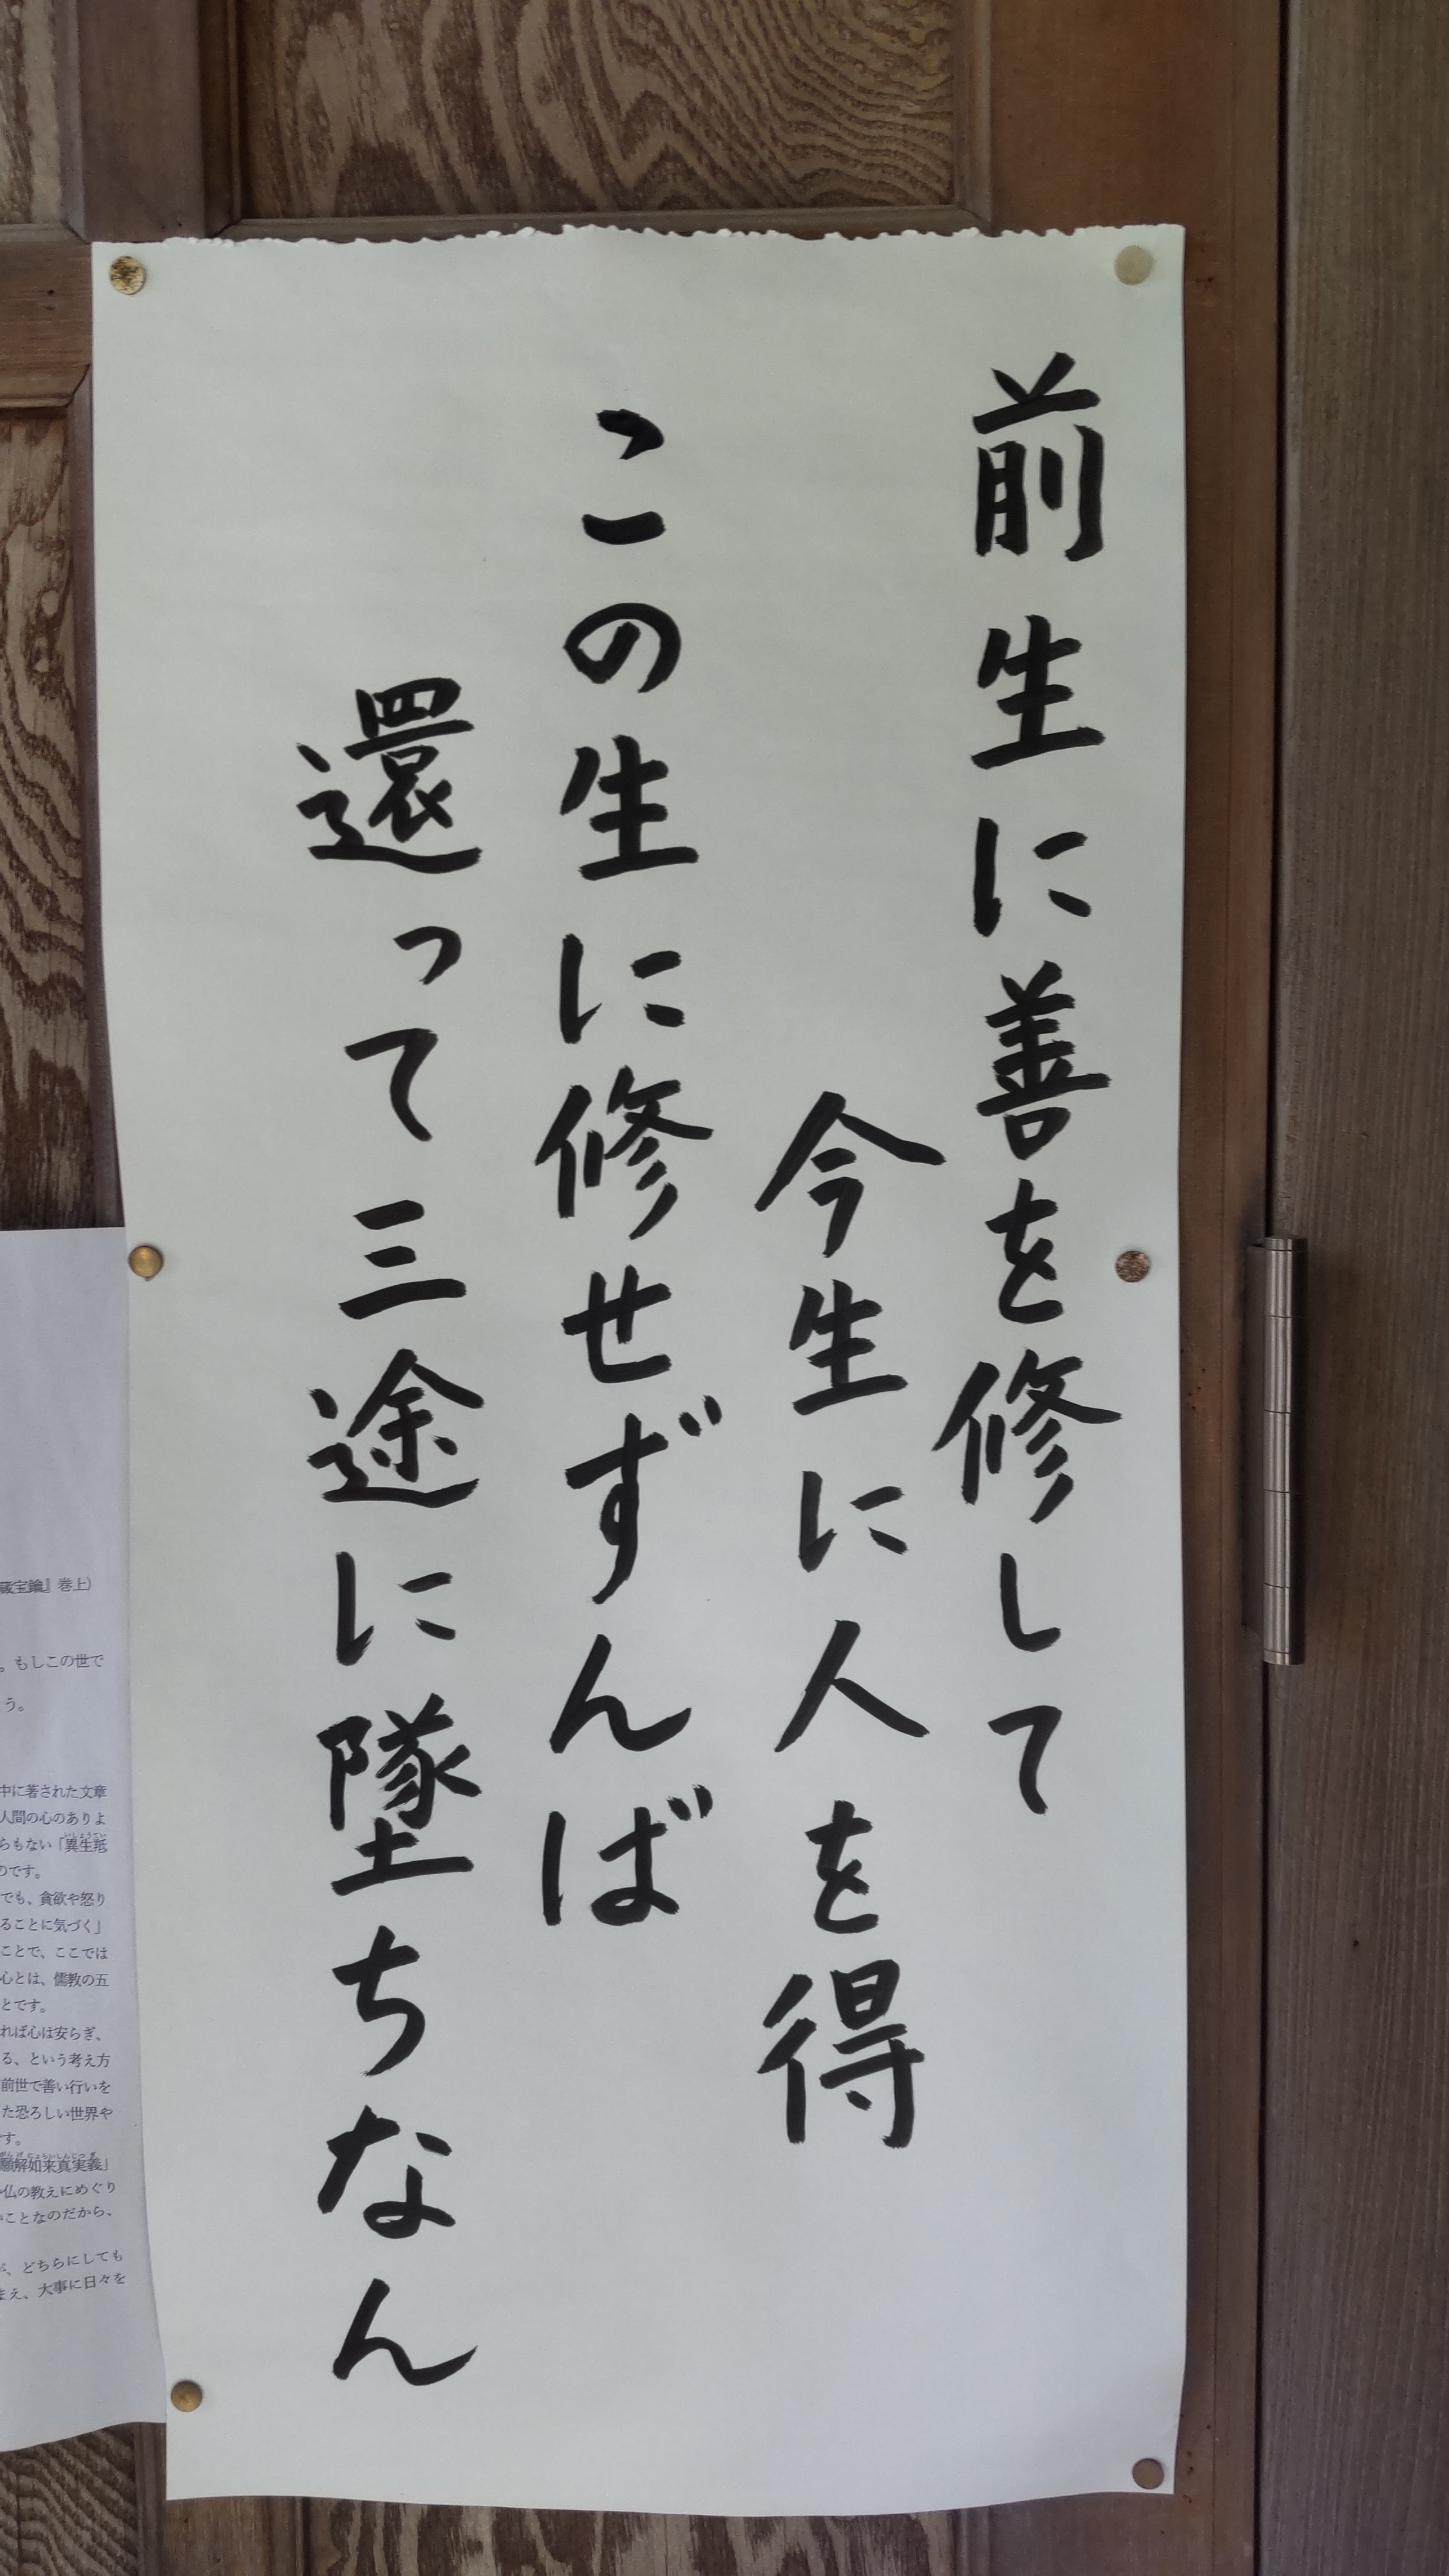 前生に善を修して
今生に人を得
この生に修せずんば
還って三途に墜ちなん
蔵宝鑰』巻上）
。もしこの世で
う。
中に著された文章
人間の心のありよ
らもない「異生羝
のです。
でも、貪欲や怒り
ることに気づく」
ことで、ここでは
心とは、儒教の五
とです。
れば心は安らぎ、
る、という考え方
前世で善い行いを
た恐ろしい世界や
です。
願解如来真実義」
い仏の教えにめぐり
いことなのだから、
が、どちらにしても
まえ、大事に日々を